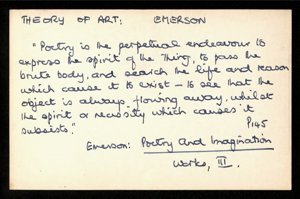 THEORY OF ART: EMERSON
"Poetry is the perpetual endeavour to
express the spirit of the thing, to pass the
brute body, and search the life and reason
which cause it to exist – to see that the
object is always flowing away, whilst
the spirit or necessity which causes it
subsists."
P145
Emerson: Poetry and Imagination
Works, III.